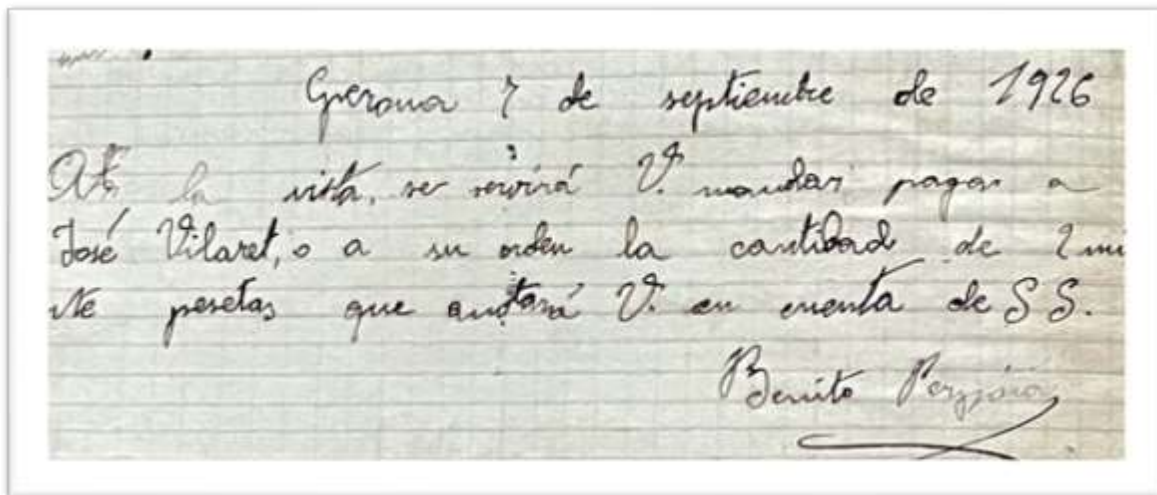 Gerona 7 de septiembre de 1926
A la vista, se servirá V. mandar pagar a
José Vilaret, o a su orden la cantidad de
pesetas que anotará V. en cuenta de S S.
Benito